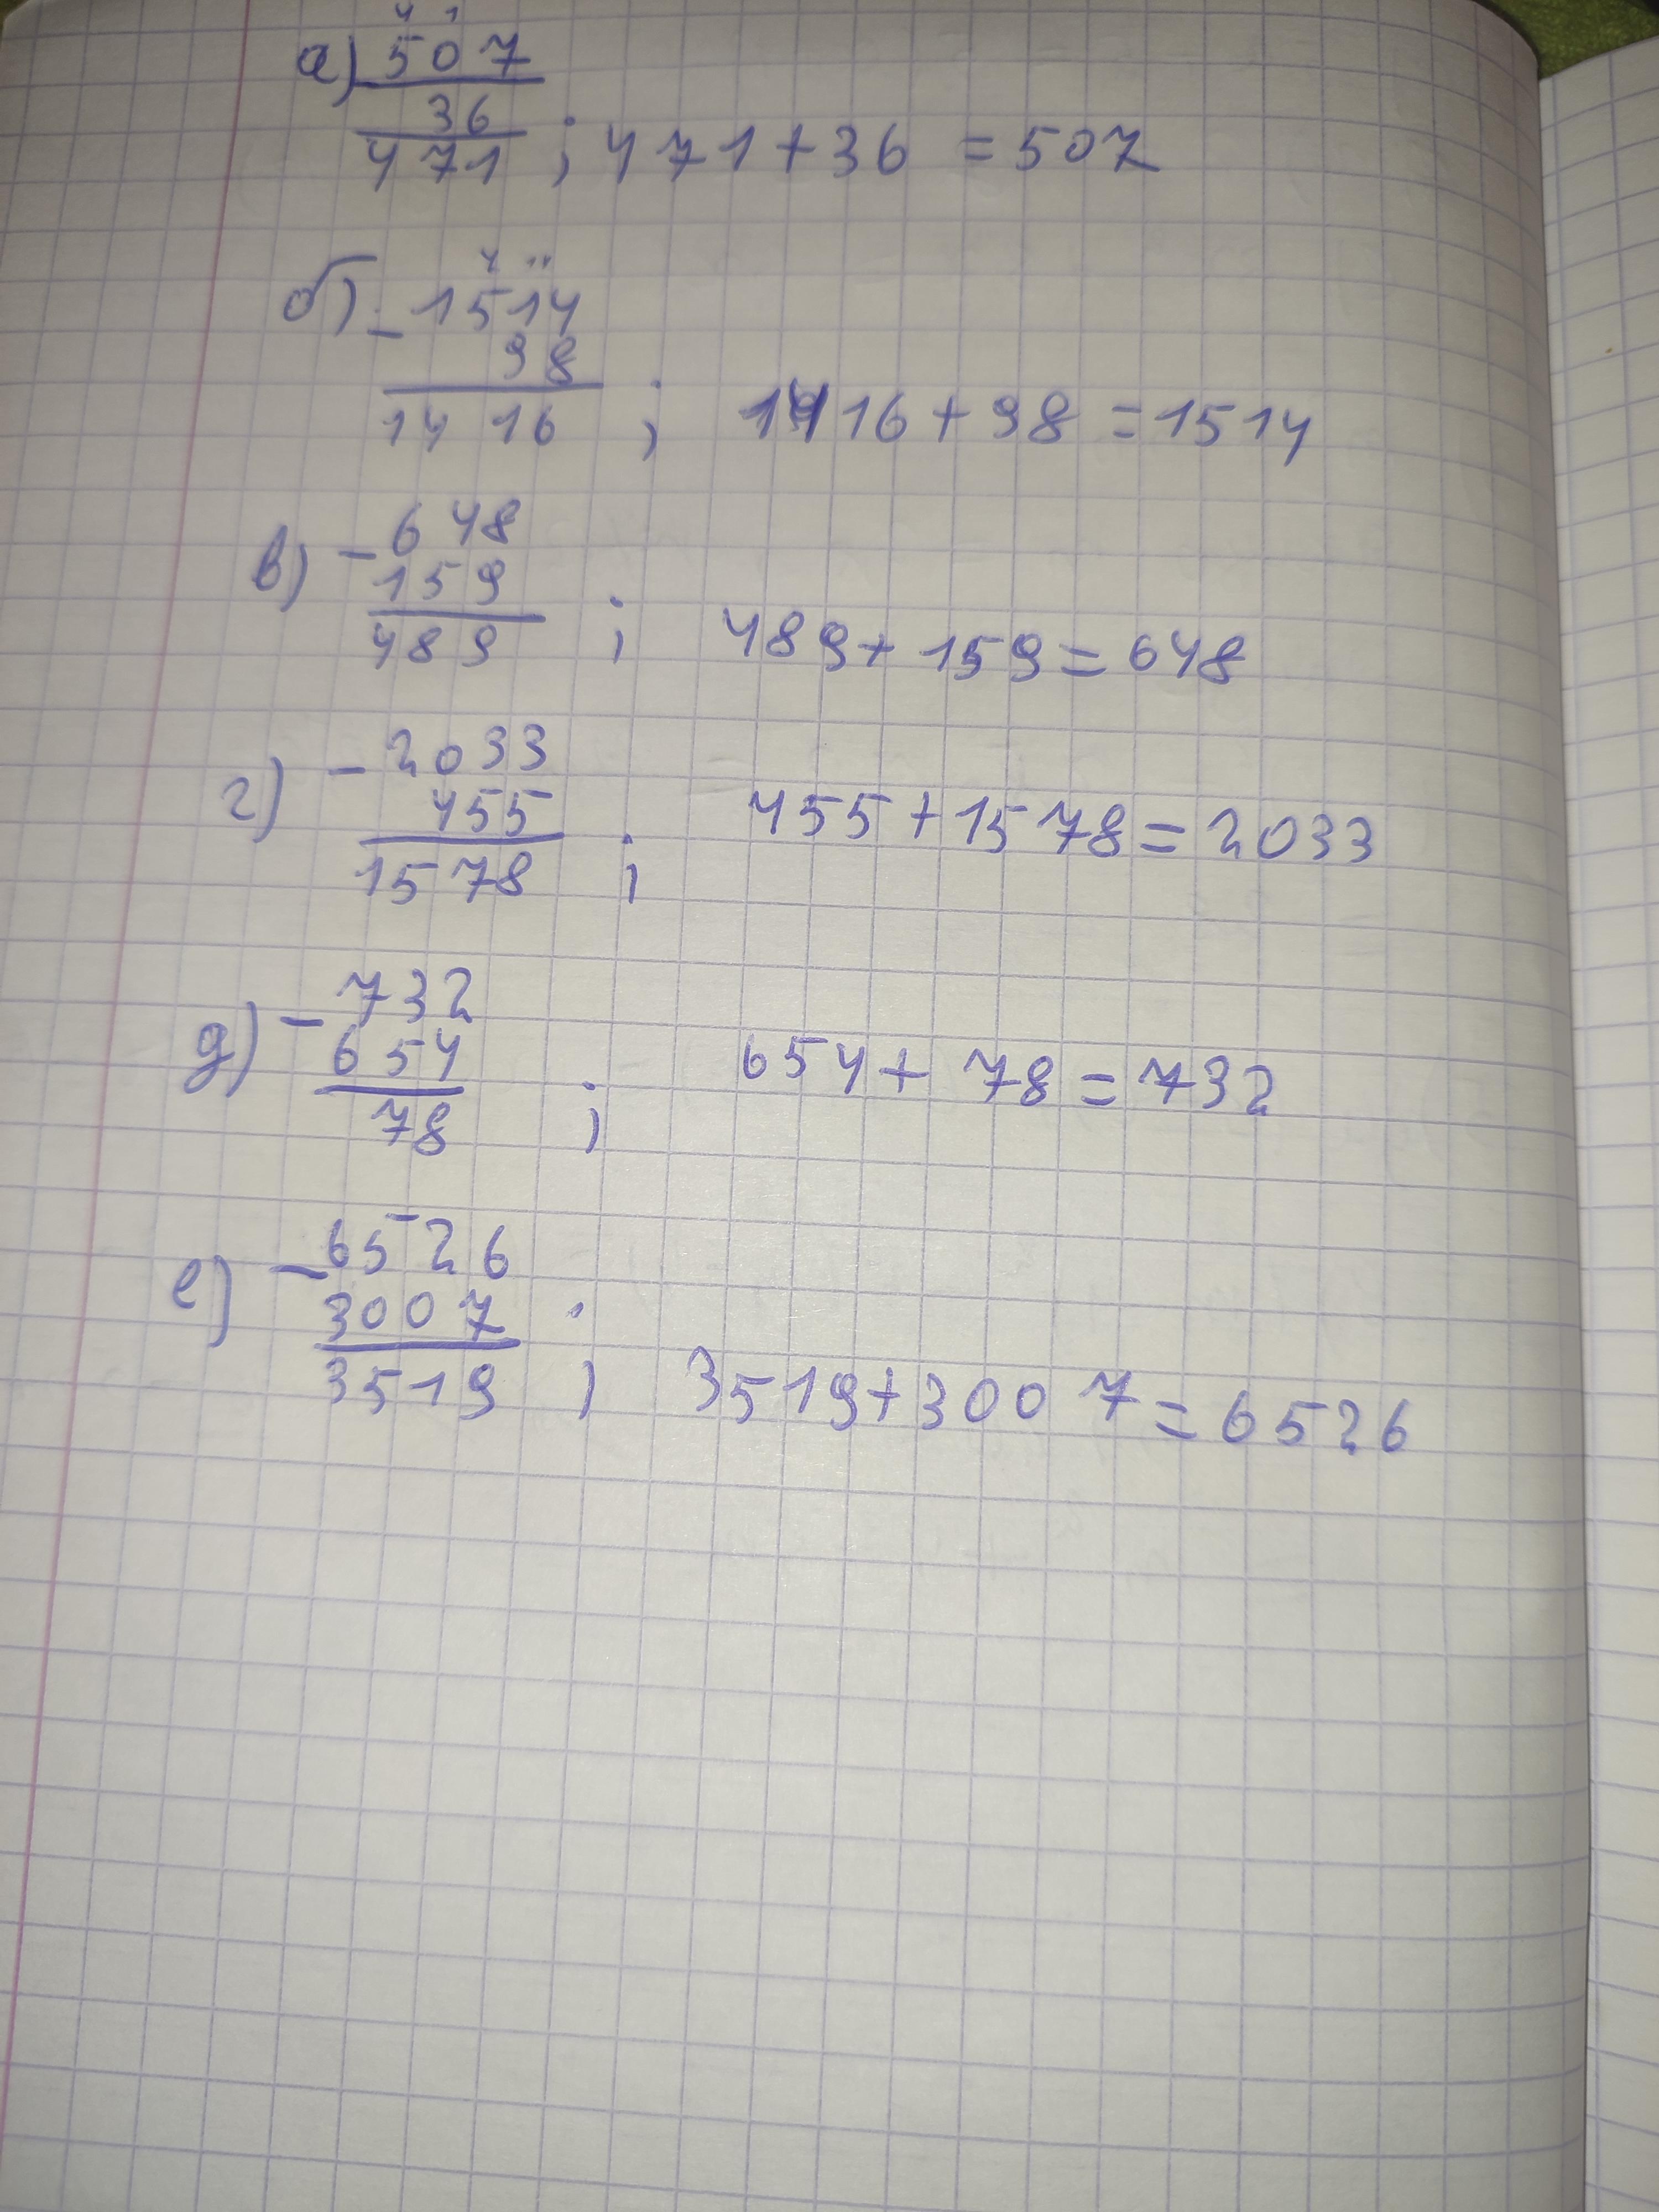 4 1
а) 507
36
471 ; 471+36 = 507
4
б) - 1514
98
1416 ; 1416+98 = 1514
в) - 648
159
489 ; 489+159=648
г) - 2033
455
1578 ; 455+1578=2033
д) - 732
654
78 ; 654+78=732
е) - 6526
3007
3519 ; 3519+3007=6526